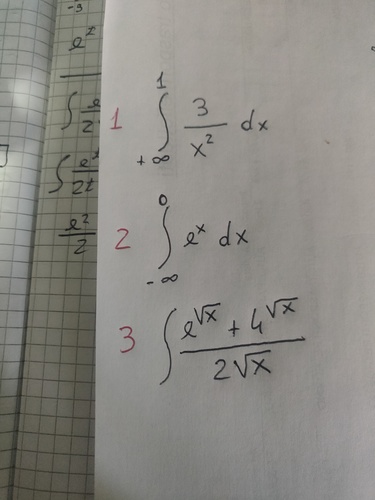 -3
e²
∫ e
2
∫ eᵗ
2t
e²
2
1 ∫₊∞¹ 3/x² dx
2 ∫₋∞⁰ eˣ dx
3 ∫ (e^√x + 4^√x)/(2√x)